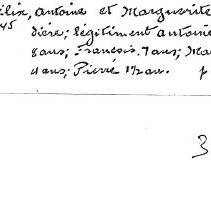 élix, antoine et Marguerite
45
dière; légitiment antoine
8 ans; François, 7 ans; Ma
4 ans; Pierre 1½ an. p
3